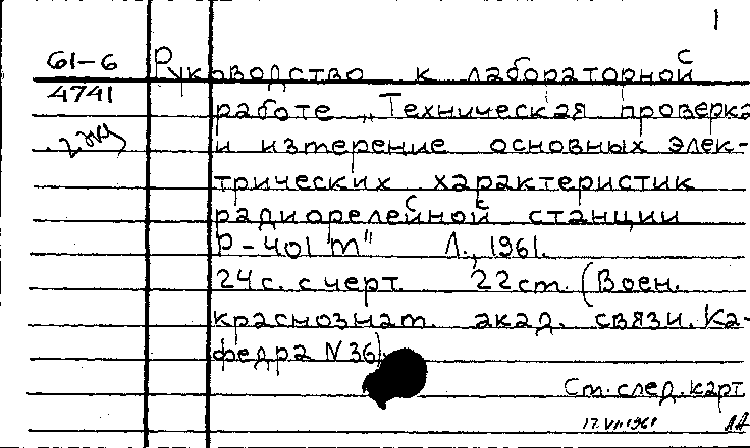 1
61-6 Руководство к лабораторной
4741 работе „Техническая проверка
2 экз и измерение основных элек-
трических характеристик
радиорелейной станции
Р-401 "М" Л., 1961.
24 с. с черт. 22 см. (Воен.
краснознам. акад. связи. Ка-
федра N 36)
См. след. карт
17.VII 1961